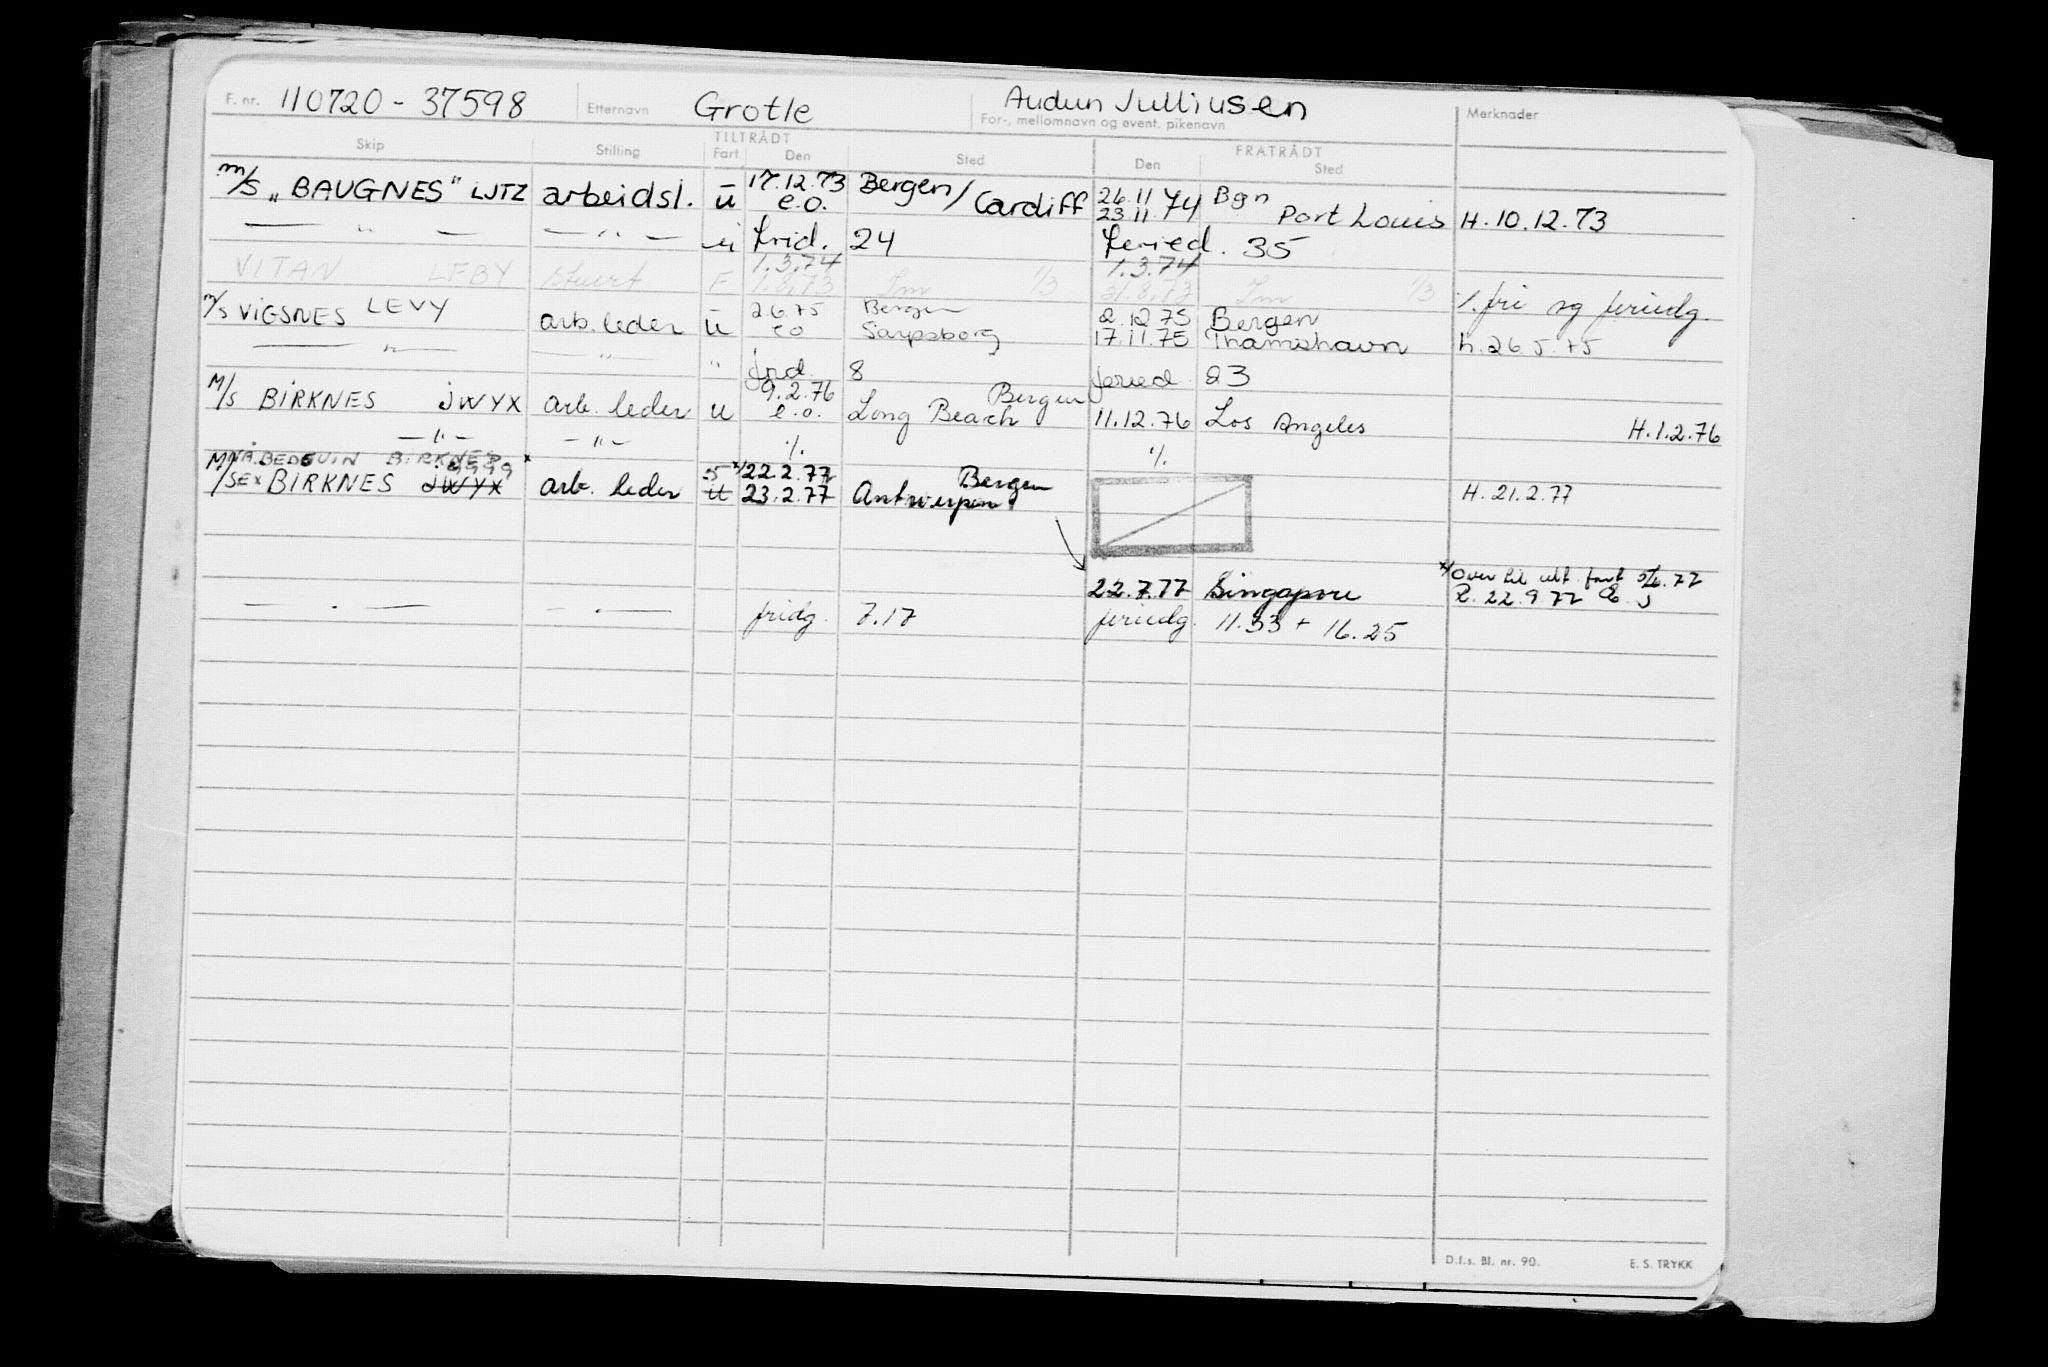 F. nr. 110720 - 37598 Etternavn Grotle Audun Julliusen For-, mellomnavn og event. pikenavn Merknader
TILTRÅDT FRATRÅDT
Skip Stilling Fart Den Sted Den Sted
m/s „BAUGNES" LJTZ arbeidsl. u 17.12.73 e.o. Bergen/Cardiff 26.11 23.11.74 Bgn Port Louis H. 10.12.73
— " — — " — u frid. 24 feried. 35
1.3.74 1.3.74
VITAN LFBY stuert F 1.8.73 Im 1/3 31.8.73 Im 1/3 ·/. fri og feriedg.
m/s VIGSNES LEVY arb. leder u 2.6.75 Bergen 2.12.75 Bergen
eo Sarpsborg 17.11.75 Thamshavn h. 26.5.75
— " — — " — " frid. 8 feried. 23
M/s BIRKNES JWYX arb. leder u 9.2.76 e.o. Bergen Long Beach 11.12.76 Los Angeles H. 1.2.76
— " — — " — ·/. ·/.
NÅ. BEDOUIN BIRKNES x
M/s EX BIRKNES JWYX arb. leder 22.2.77 Bergen
23.2.77 Antwerpen H. 21.2.77
x/ Over til utl. fart 77
22.7.77 Singapore 22.9.77
— . — — . — fridg. 7.17 feriedg. 11.33 + 16.25
D.f.s. Bl. nr. 90. E. S. TRYKK